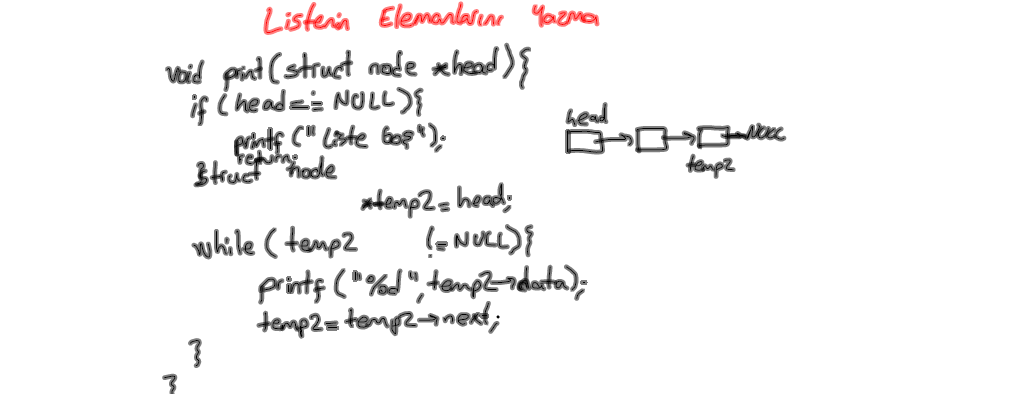 Listenin Elemanlarını Yazma
void print(struct node *head){
if (head == NULL){
printf ("Liste boş");
return;
}struct node
*temp2 = head;
while (temp2 != NULL){
printf ("%d", temp2→data);
temp2 = temp2→next;
}
}
head
NULL
temp2